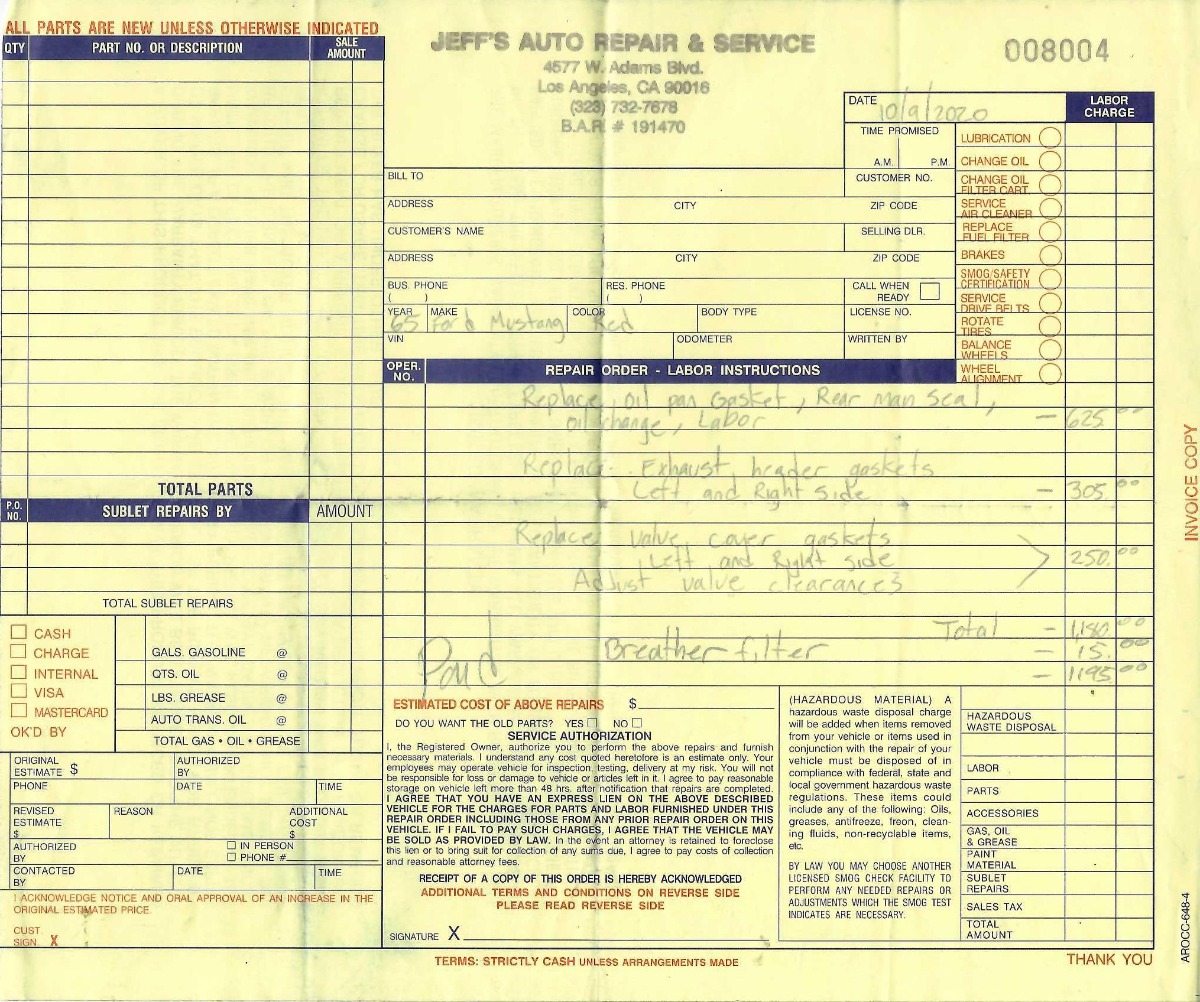 ALL PARTS ARE NEW UNLESS OTHERWISE INDICATED
QTY PART NO. OR DESCRIPTION SALE AMOUNT
JEFF'S AUTO REPAIR & SERVICE
4577 W. Adams Blvd.
Los Angeles, CA 90016
(323) 732-7678
B.A.R. # 191470
008004
DATE 10/9/2020
LABOR CHARGE
TIME PROMISED
A.M. P.M.
LUBRICATION
CHANGE OIL
CHANGE OIL FILTER CART.
SERVICE AIR CLEANER
REPLACE FUEL FILTER
BRAKES
SMOG/SAFETY CERTIFICATION
SERVICE DRIVE BELTS
ROTATE TIRES
BALANCE WHEELS
WHEEL ALIGNMENT
BILL TO CUSTOMER NO.
ADDRESS CITY ZIP CODE
CUSTOMER'S NAME SELLING DLR.
ADDRESS CITY ZIP CODE
BUS. PHONE ( ) RES. PHONE ( ) CALL WHEN READY
YEAR 65 MAKE Ford Mustang COLOR Red BODY TYPE LICENSE NO.
VIN ODOMETER WRITTEN BY
OPER. NO. REPAIR ORDER - LABOR INSTRUCTIONS
Replace oil pan Gasket, Rear Man Seal,
oil change, Labor - 625.00
Replace Exhaust header gaskets
Left and Right side - 305.00
Replace valve cover gaskets
Left and Right side 250.00
Adjust valve clearances
Total - 1,180.00
Paid Breather filter - 15.00
- 1195.00
TOTAL PARTS
P.O. NO. SUBLET REPAIRS BY AMOUNT
TOTAL SUBLET REPAIRS
CASH
CHARGE
INTERNAL
VISA
MASTERCARD
OK'D BY
GALS. GASOLINE @
QTS. OIL @
LBS. GREASE @
AUTO TRANS. OIL @
TOTAL GAS • OIL • GREASE
ORIGINAL ESTIMATE $ AUTHORIZED BY
PHONE DATE TIME
REVISED ESTIMATE $ REASON ADDITIONAL COST $
AUTHORIZED BY IN PERSON
PHONE #
CONTACTED BY DATE TIME
I ACKNOWLEDGE NOTICE AND ORAL APPROVAL OF AN INCREASE IN THE
ORIGINAL ESTIMATED PRICE.
CUST SIGN. X
ESTIMATED COST OF ABOVE REPAIRS $
DO YOU WANT THE OLD PARTS? YES NO
SERVICE AUTHORIZATION
I, the Registered Owner, authorize you to perform the above repairs and furnish
necessary materials. I understand any cost quoted heretofore is an estimate only. Your
employees may operate vehicle for inspection, testing, delivery at my risk. You will not
be responsible for loss or damage to vehicle or articles left in it. I agree to pay reasonable
storage on vehicle left more than 48 hrs. after notification that repairs are completed.
I AGREE THAT YOU HAVE AN EXPRESS LIEN ON THE ABOVE DESCRIBED
VEHICLE FOR THE CHARGES FOR PARTS AND LABOR FURNISHED UNDER THIS
REPAIR ORDER INCLUDING THOSE FROM ANY PRIOR REPAIR ORDER ON THIS
VEHICLE. IF I FAIL TO PAY SUCH CHARGES, I AGREE THAT THE VEHICLE MAY
BE SOLD AS PROVIDED BY LAW. In the event an attorney is retained to foreclose
this lien or to bring suit for collection of any sums due, I agree to pay costs of collection
and reasonable attorney fees.
RECEIPT OF A COPY OF THIS ORDER IS HEREBY ACKNOWLEDGED
ADDITIONAL TERMS AND CONDITIONS ON REVERSE SIDE
PLEASE READ REVERSE SIDE
SIGNATURE X
(HAZARDOUS MATERIAL) A
hazardous waste disposal charge
will be added when items removed
from your vehicle or items used in
conjunction with the repair of your
vehicle must be disposed of in
compliance with federal, state and
local government hazardous waste
regulations. These items could
include any of the following: Oils,
greases, antifreeze, freon, clean-
ing fluids, non-recyclable items,
etc.
BY LAW YOU MAY CHOOSE ANOTHER
LICENSED SMOG CHECK FACILITY TO
PERFORM ANY NEEDED REPAIRS OR
ADJUSTMENTS WHICH THE SMOG TEST
INDICATES ARE NECESSARY.
HAZARDOUS WASTE DISPOSAL
LABOR
PARTS
ACCESSORIES
GAS, OIL & GREASE
PAINT MATERIAL
SUBLET REPAIRS
SALES TAX
TOTAL AMOUNT
TERMS: STRICTLY CASH UNLESS ARRANGEMENTS MADE
THANK YOU
INVOICE COPY
AROCC-648-4